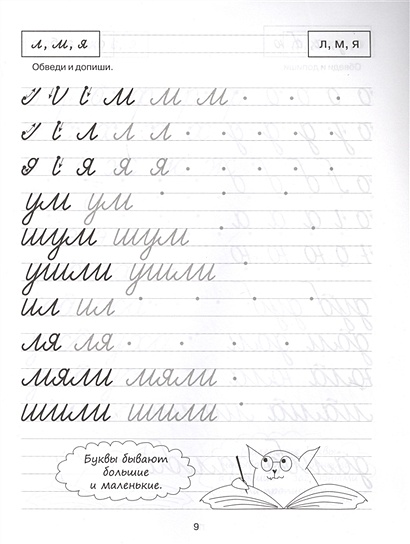 л, м, я л, м, я
Обведи и допиши.
м м м
л л л
я я я я
ум ум
шум шум
ушили ушили
ил ил
ля ля
мяли мяли
шили шили
Буквы бывают
большие
и маленькие.
9